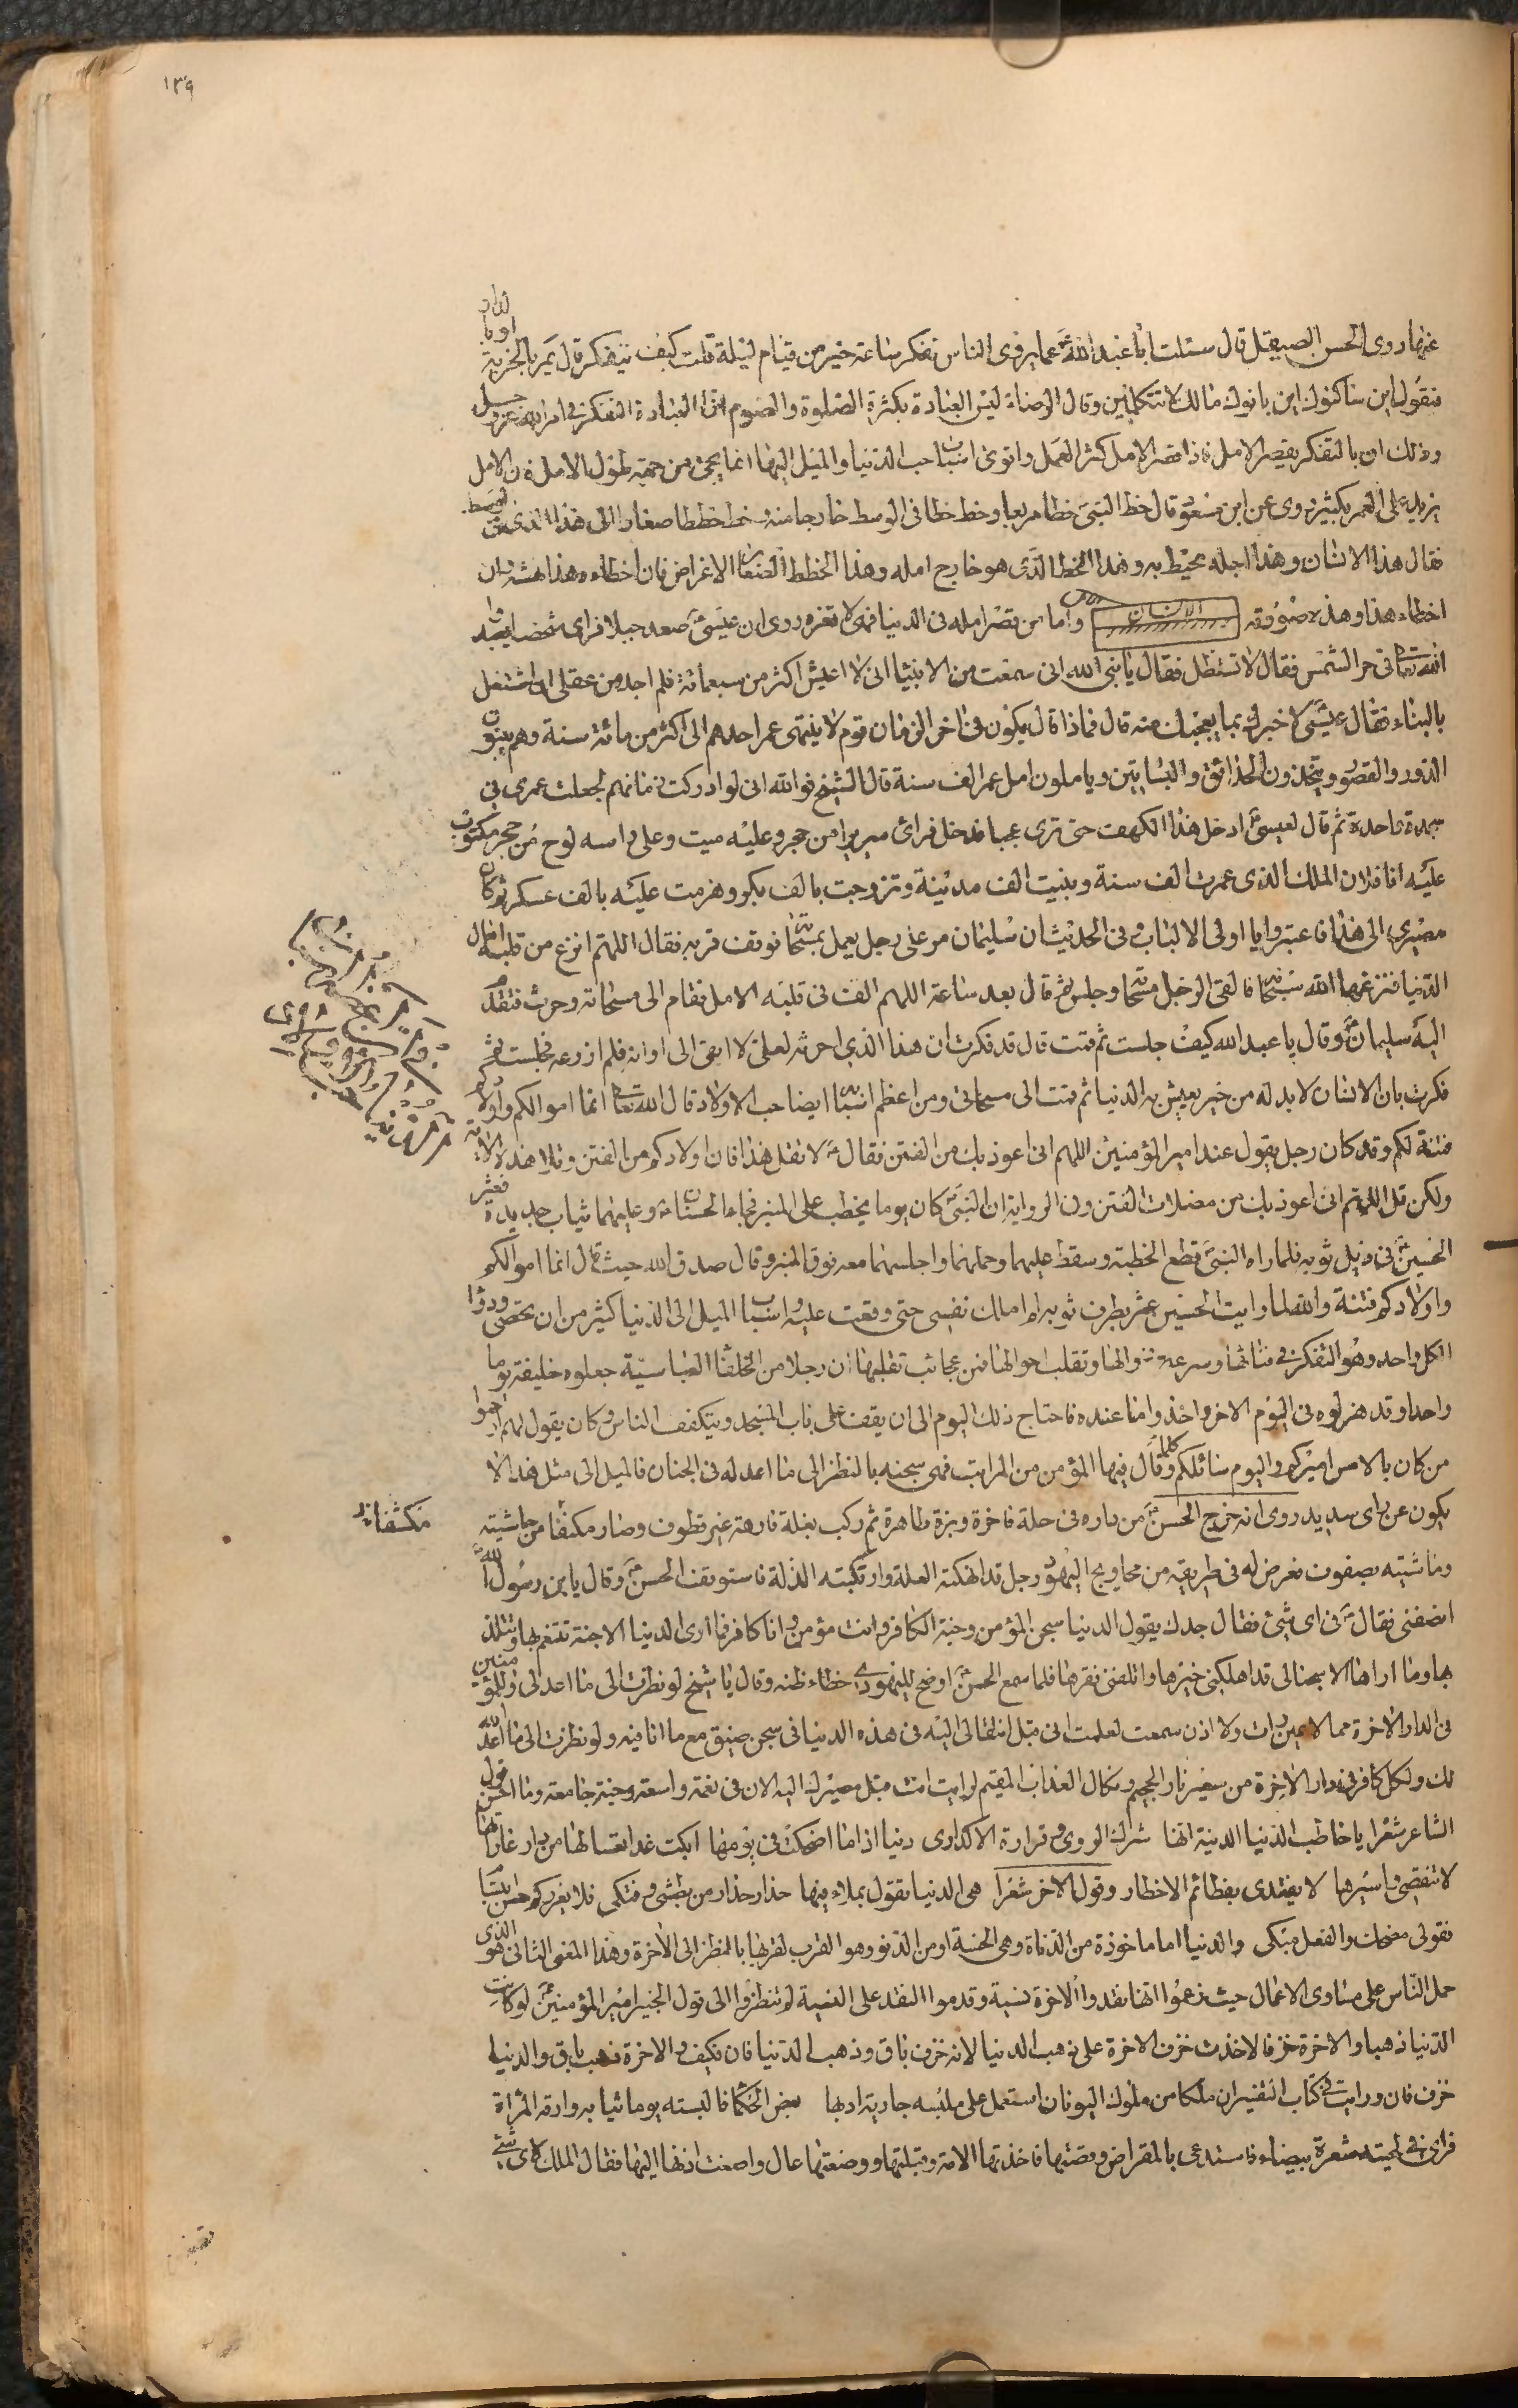 ١٣٩
عنها روى الحسن الصيقل قال سئلت ابا عبد الله عما يروى الناس تفكر ساعة خير من قيام ليلة قلت كيف يتفكر قال يمر بالخربة او بالدار
فيقول اين ساكنوك اين بانوك مالك لا تتكلمين وقال الرضا ليس العبادة بكثرة الصلوة والصوم انما العبادة التفكر فى امر الله عز وجل
وذلك ان بالتفكر يقصر الامل فاذا قصر الامل كثر العمل واقوى اسباب حب الدنيا والميل اليها انما يجئ من جهة طول الامل فان الامل
يزيد على العمر بكثير روى عن ابن مسعود قال خط النبى خطا مربعا وخط خطا فى الوسط خارجا منه وخط خططا صغارا الى هذا الذى فى الوسط
فقال هذا الانسان وهذا اجله محيط به وهذا الخط الذى هو خارج امله وهذا الخطط الصغار الاعراض فان اخطاءه هذا نهشه وان
اخطاء هذا وهذه صورته الانسان واما من قصر امله فى الدنيا فهى لا تغره روى ان عيسى صعد جبلا فراى شخصا يعبد
الله تعالى فى حر الشمس فقال لا تستظل فقال يا نبى الله انى سمعت من الانبياء انى لا اعيش اكثر من سبعمائة فلم اجد من عقلى ان اشتغل
بالبناء فقال عيسى لاخبرك بما يعجبك منه قال فماذا قال يكون فى اخر الزمان قوم لا ينتهى عمر احدهم الى اكثر من مائة سنة وهم يبنون
الدور والقصور ويتخذون الحدائق والبساتين ويأملون امل عمر الف سنة قال الشيخ فوالله انى لو ادركت زمانهم لجعلت عمرى فى
سجدة واحدة ثم قال لعيسى ادخل هذا الكهف حتى ترى عجبا فدخل فراى سريرا من حجر وعليه ميت وعلى راسه لوح من حجر مكتوب
عليه انا فلان الملك الذى عمرت الف سنة وبنيت الف مدينة وتزوجت بالف بكر وهزمت عليه بالف عسكر ثم كان
مصيرى الى هذا فاعتبروا يا اولى الالباب وفى الحديث ان سليمان مر على رجل يعمل بمسحاته فوقف قربه فقال اللهم انزع من قلبه امال
الدنيا فنزعها الله سبحانه فالقى الرجل مسحاته وجلس ثم قال بعد ساعة اللهم الق فى قلبه الامل فقام الى مسحاته وحرث فتقدم
اليه سليمان وقال يا عبد الله كيف جلست ثم قمت قال قد فكرت ان هذا الذى احرثه لعلى لا ابقى الى اوانه فلم ازرعه فجلست ثم
فكرت بان الانسان لا بد له من خير يعيش به الدنيا ثم قمت الى مسحاتى ومن اعظم اسبابها ايضا حب الاولاد قال الله تعالى انما اموالكم واولادكم
فتنة لكم وقد كان رجل يقول عند امير المؤمنين اللهم انى اعوذ بك من الفتن فقال لا تقل هذا فان اولادكم من الفتن وتلا هذه الاية
ولكن قل اللهم انى اعوذ بك من مضلات الفتن وفى الرواية ان النبى كان يوما يخطب على المنبر فجاء الحسنان وعليهما ثياب جديدة فعثر
الحسين فى ذيل ثوبه فلما راه النبى قطع الخطبة وسقط عليهما وحملهما واجلسهما معه فوق المنبر وقال صدق الله حيث قال انما اموالكم
واولادكم فتنة والله لما رايت الحسين عثر بطرف ثوبه لم املك نفسى حتى وقعت عليه واسباب الميل الى الدنيا كثير من ان تحصى ودواء
الكل واحد وهو التفكر فى فنائها وسرعة زوالها وتقلب احوالها فمن عجائب تقلبها ان رجلا من الخلفاء العباسية جعلوه خليفة يوما
واحدا وقد عزلوه فى اليوم الاخر واخذوا ما عنده فاحتاج ذلك اليوم الى ان يقف على باب المسجد ويتكفف الناس وكان يقول لهم ارحموا
من كان بالامس اميركم واليوم سائلكم وكلما قال فيها المؤمن من المراتب فهى سجنه بالنظر الى ما اعد له فى الجنان فالميل الى مثل هذا لا
يكون عن راى سديد روى انه خرج الحسن من داره فى حلة فاخرة وبزة طاهرة ثم ركب بغلة فارهة غير قطوف وصار مكتفا من حاشيته
وماشيته بصفوف فعرض له فى طريقه من محاويج اليهود رجل قد انهكته العلة وارتكبته الذلة فاستوقف الحسن وقال يا بن رسول الله
انصفنى فقال فى اى شئ فقال جدك يقول الدنيا سجن المؤمن وجنة الكافر وانت مؤمن وانا كافر فما ارى الدنيا الا جنة تتنعم بها وتتلذذ
بها وما اراها الا سجنا لى قد اهلكنى ضرها واتلفنى فقرها فلما سمع الحسن اوضح لليهودى خطاء ظنه وقال يا شيخ لو نظرت الى ما اعد لى وللمؤمنين
فى الدار الاخرة مما لا عين رات ولا اذن سمعت لعلمت انى قبل انتقالى اليه فى هذه الدنيا فى سجن ضيق مع ما انا فيه ولو نظرت الى ما اعد الله
لك ولكل كافر فى دار الاخرة من سعير نار الجحيم ونكال العذاب المقيم لرايت انك قبل مصيرك اليه الان فى نعمة واسعة وجنة جامعة وما احسن قول
الشاعر شعرا يا خاطب الدنيا الدنية انها شرك الردى وقرارة الاكدار دنيا اذا ما اضحكت فى يومها ابكت غدا تعسا لها من دار غاراتها
لا تنقضى واسيرها لا يفتدى بعظائم الاخطار وقول الاخر شعرا هى الدنيا تقول بملاء فيها حذار حذار من بطشى وفتكى فلا يغرركم حسن ابتسامى
فقولى مضحك والفعل مبكى والدنيا اما ماخوذة من الدناة وهى الخسة او من الدنو وهو القرب لقربها بالنظر الى الاخرة وهذا المعنى الثانى هو الذى
حمل الناس على مساوى الاعمال حيث زعموا انها نقد والاخرة نسية وقدموا النقد على النسية ولم تنظروا الى قول الخبير امير المؤمنين لو كانت
الدنيا ذهبا والاخرة خزفا لاخذت خزف الاخرة على ذهب الدنيا لانه خزف باق وذهب الدنيا فان فكيف والاخرة ذهب باق والدنيا
خزف فان ورايت فى كتاب التفسير ان ملكا من ملوك اليونان استعمل على ملبسه جارية ادبها بعض الحكماء فالبسته يوما ثيابه وارته المراة
فراى فى لحيته شعرة بيضاء فاستدعى بالمقراض وقصها فاخذتها الامة وقبلتها ووضعتها على واصغت اذنها اليها فقال الملك لاى شئ